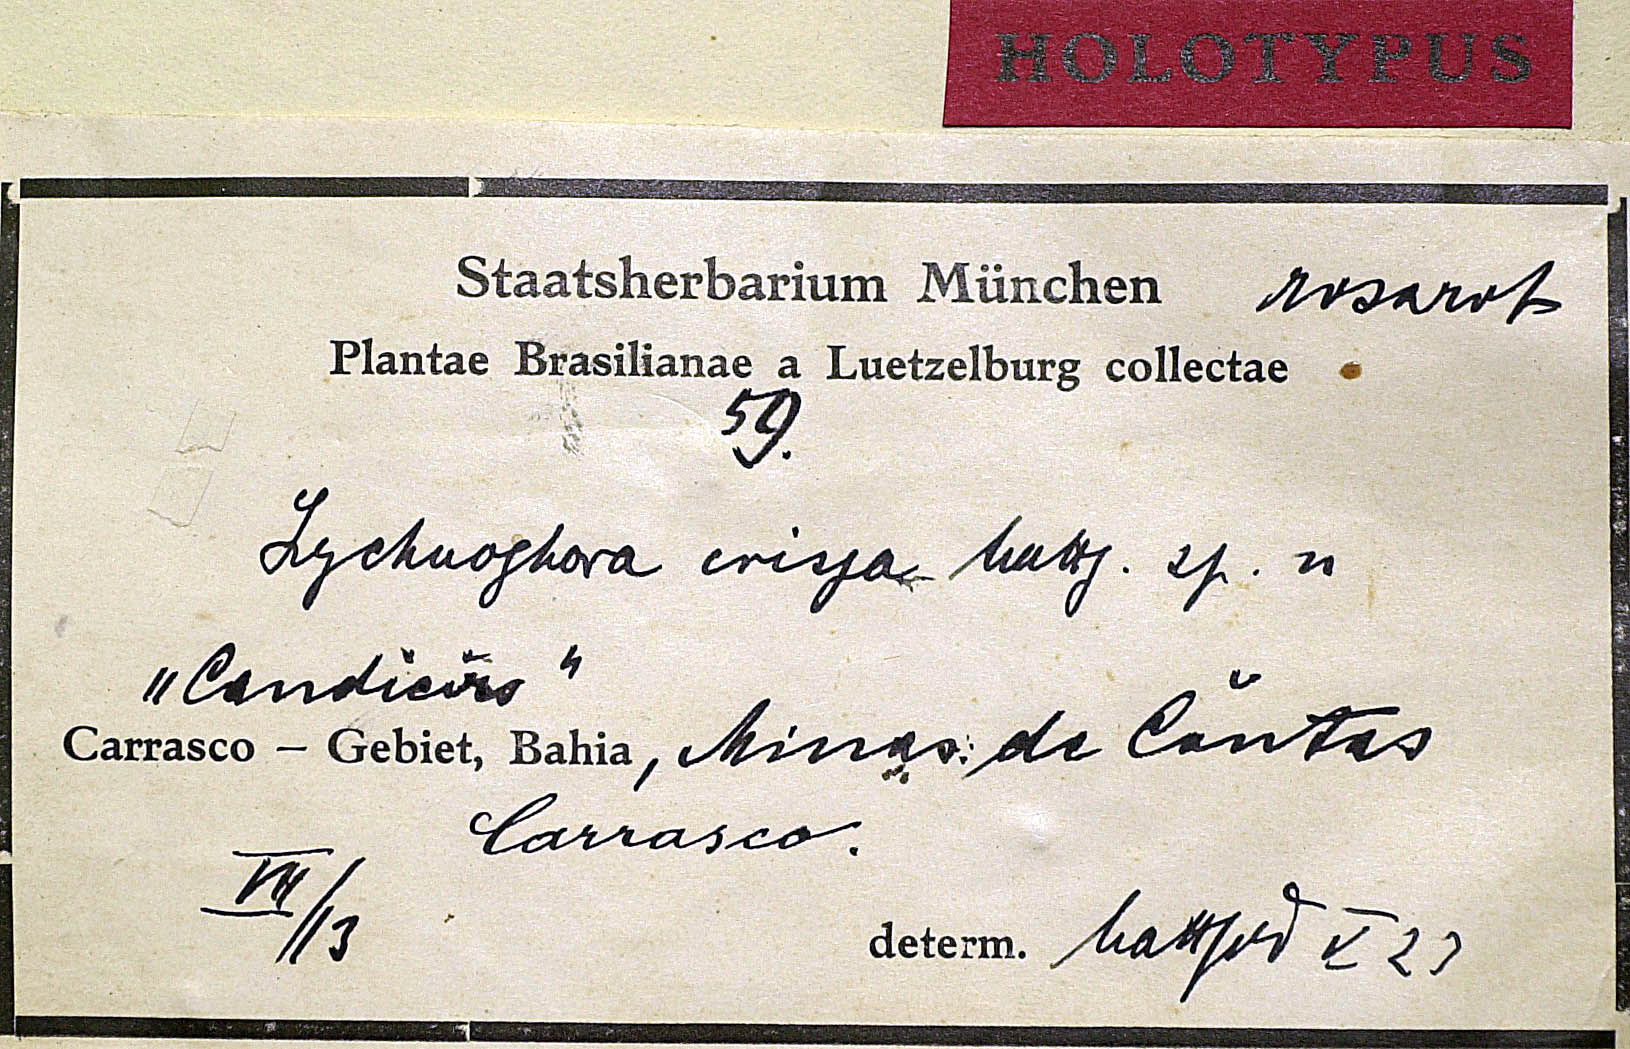 HOLOTYPUS
Staatsherbarium München rosarot
Plantae Brasilianae a Luetzelburg collectae
59.
Lychnophora crispa Mattf. sp. n
Carrasco – Gebiet, Bahia, Minas de Contas
Carrasco.
VII/13
determ. Mattfeld V 23